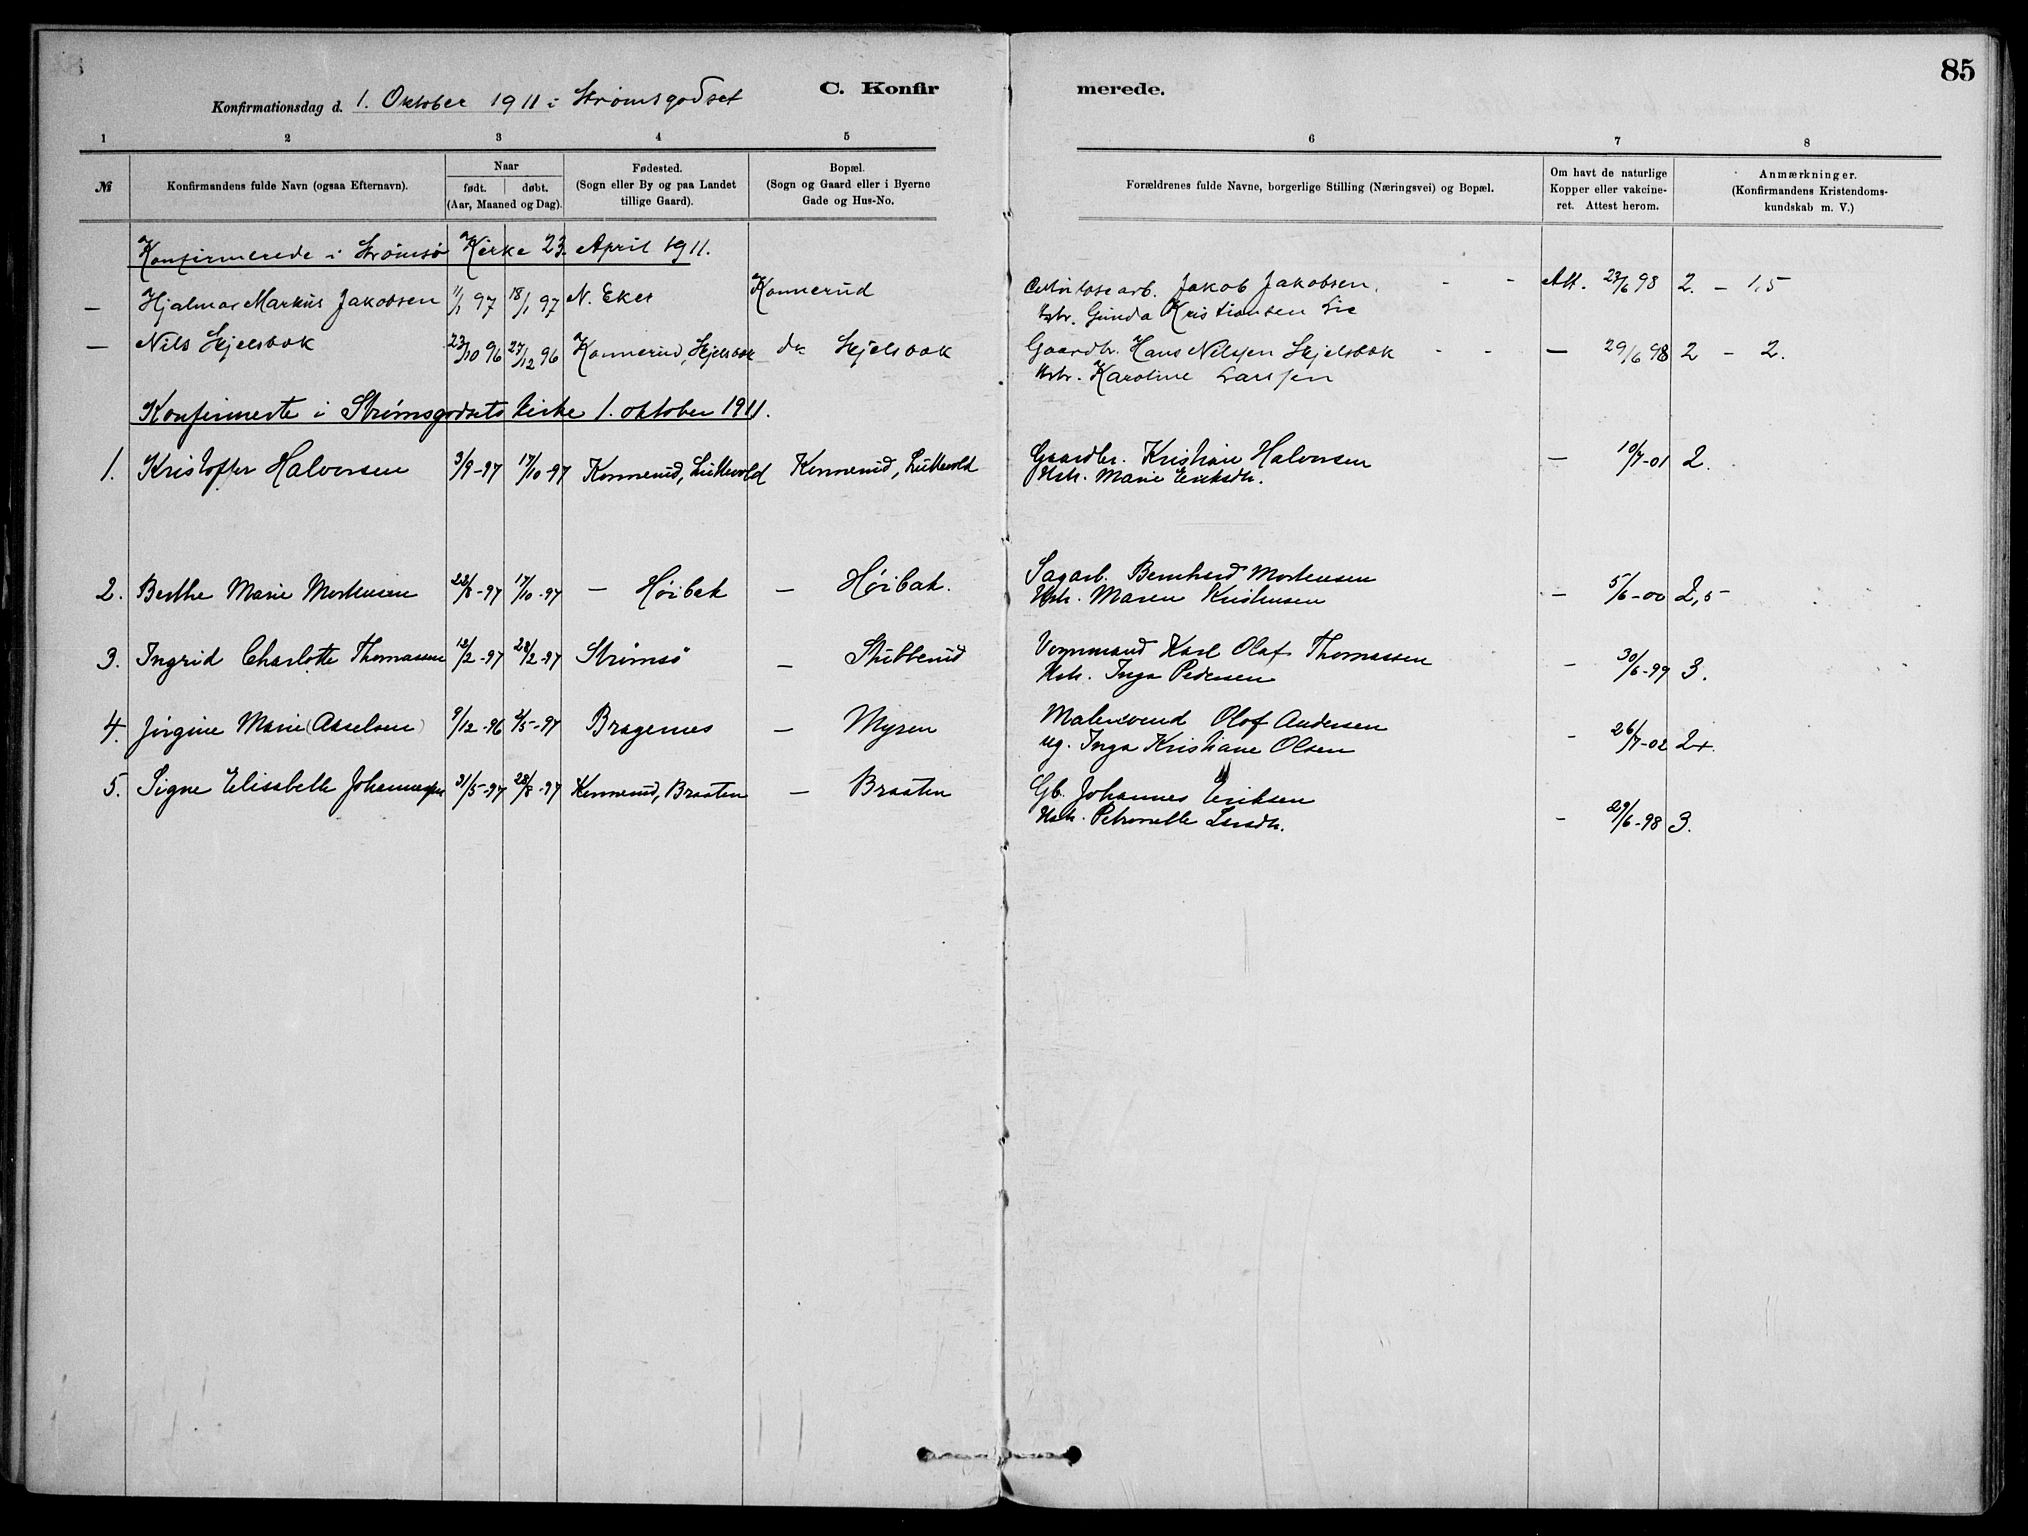 85
C. Konfirmerede.
Konfirmationsdag d. 1. Oktober 1911 i Strømsgodset
1 2 3 4 5 6 7 8
№
Konfirmandens fulde Navn (ogsaa Efternavn).
Naar
født. døbt.
(Aar, Maaned og Dag).
Fødested.
(Sogn eller By og paa Landet
tillige Gaard).
Bopæl.
(Sogn og Gaard eller i Byerne
Gade og Hus-No.
Forældrenes fulde Navne, borgerlige Stilling (Næringsvei) og Bopæl.
Om havt de naturlige
Kopper eller vakcine-
ret. Attest herom.
Anmærkninger.
(Konfirmandens Kristendoms-
kundskab m. V.)
Konfirmerede i Strømsø Kirke 23. April 1911.
— Hjalmar Markus Jakobsen 11/1 97 18/1 97 N. Eker Konnerud Cellulosearb. Jakob Jakobsen, - - Att. 23/6 98 2. – 1,5
Hstr. Gunda Kristiansen Lie
— Nils Skjelsbæk 23/10 96 27/12 96 Konnerud, Skjelsbæk do Skjelsbæk Gaardbr. Hans Nilssen Skjelsbæk - - — 29/6 98 2 – 2.
Hstr. Karoline Larssen
Konfirmerte i Strømsgodsets kirke 1. oktober 1911.
1. Kristoffer Halvorsen 3/9-97 17/10-97 Konnerud, Luttevold Konnerud, Luttevold Gaardbr. Kristian Halvorsen — 10/7-01 2.
Hstr. Marie Eriksdtr.
2. Berthe Marie Mortensen 22/8-97 17/10-97 — Høibak — Høibak. Sagarb. Bernhard Mortensen – 5/6-00 2,5
Hstr. Maren Kristensen
3. Ingrid Charlotte Thomassen 12/2-97 28/2-97 Strømsø – Stubberud Vognmand Karl Olaf Thomassen – 30/6-99 3.
Hstr. Inga Pedersen
4. Jørgine Marie (Axelsen) 9/12-96 2/5-97 Bragernes – Myren Malersvend Olof Andersen - 26/7-02 2+.
ug. Inga Kristiane Olsen
5. Signe Elisabeth Johannessen 31/5-97 28/8-97 Konnerud, Braaten – Braaten Gb. Johannes Eriksen - 29/6-98 3.
Hstr. Petronelle Larsdtr.